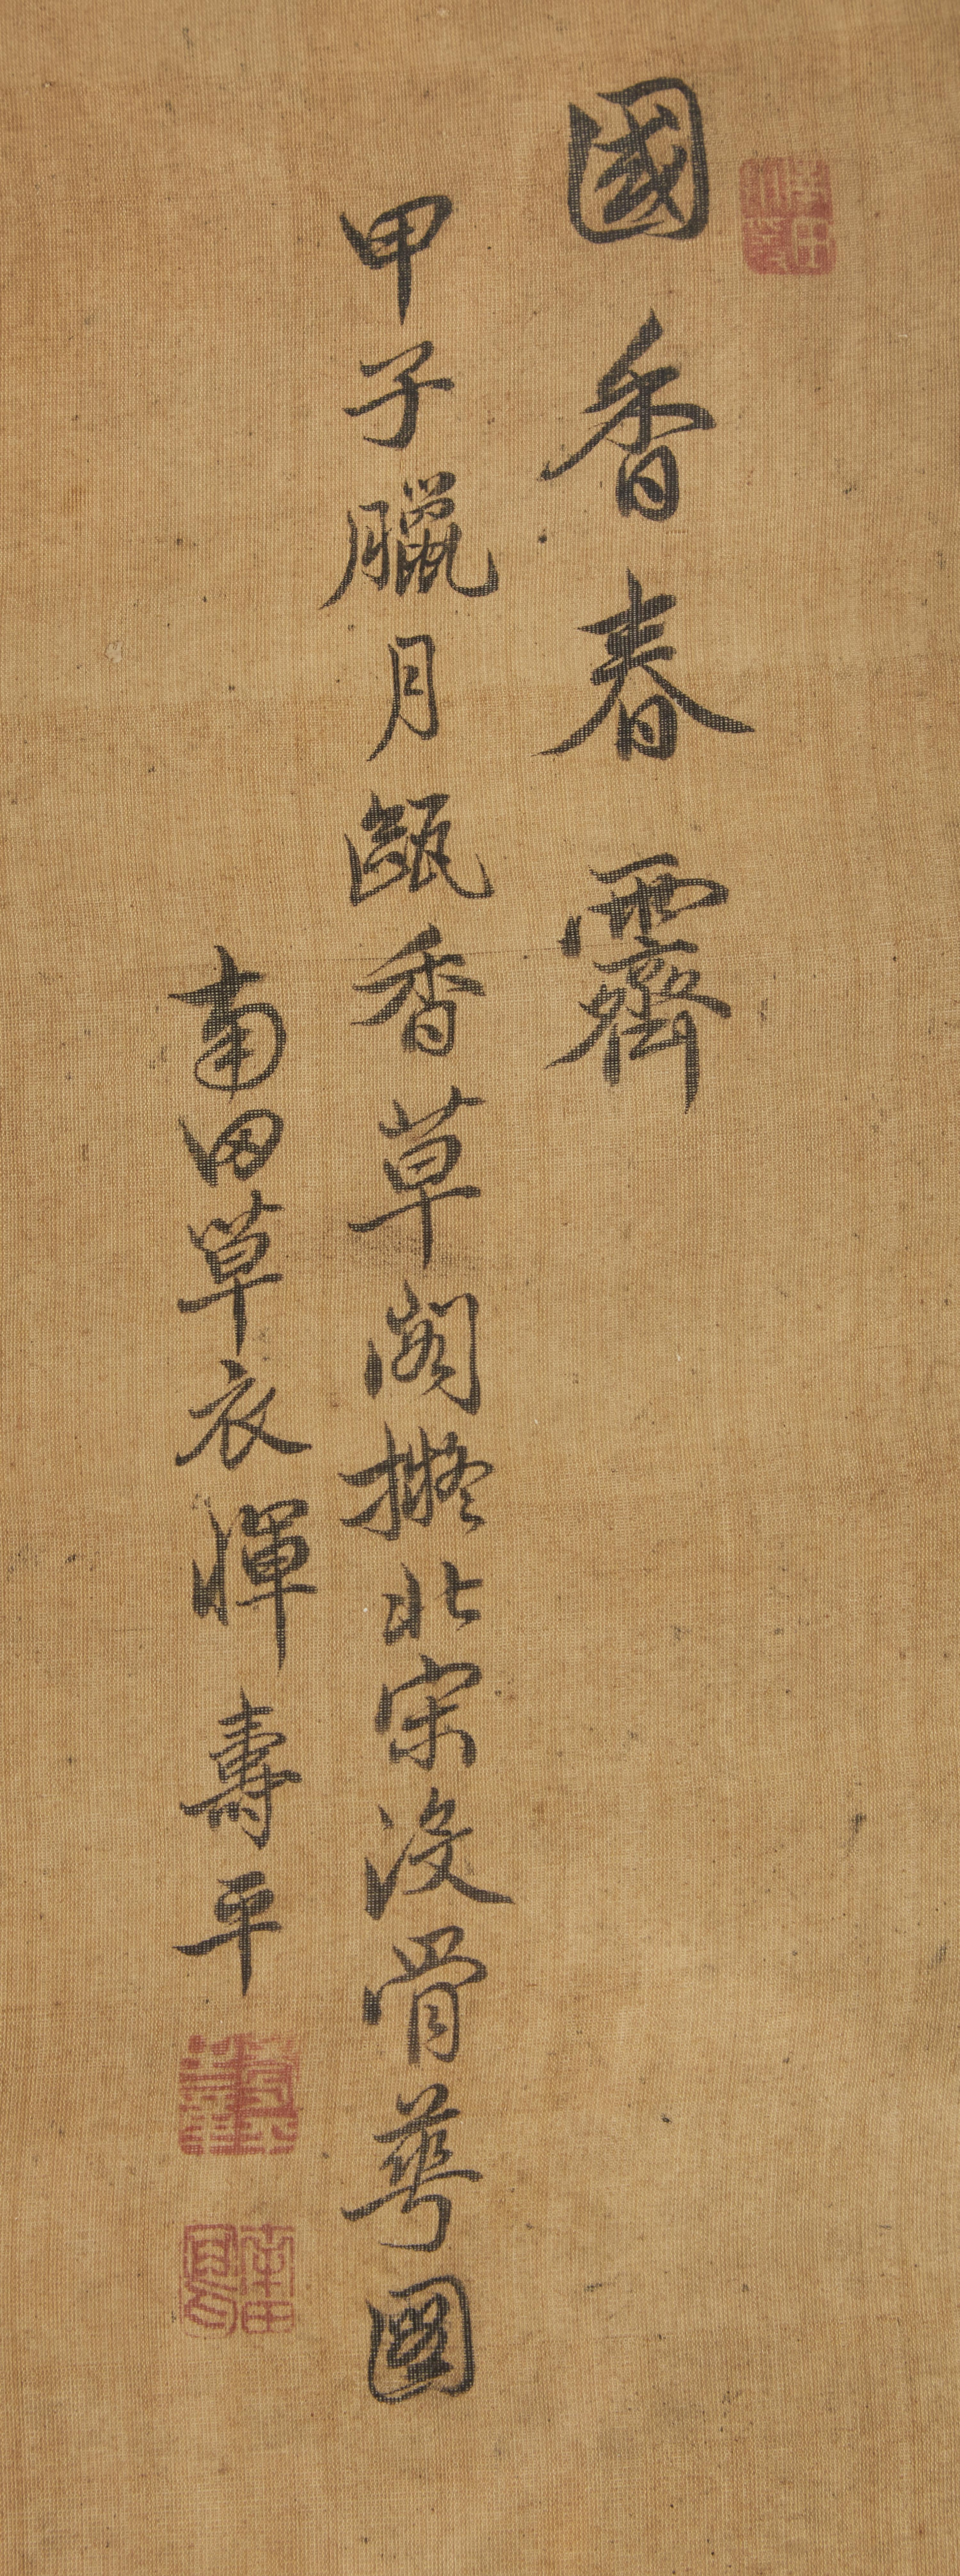 國香春霽
甲子臘月甌香草閣擬北宋沒骨萼圖
南田草衣惲壽平